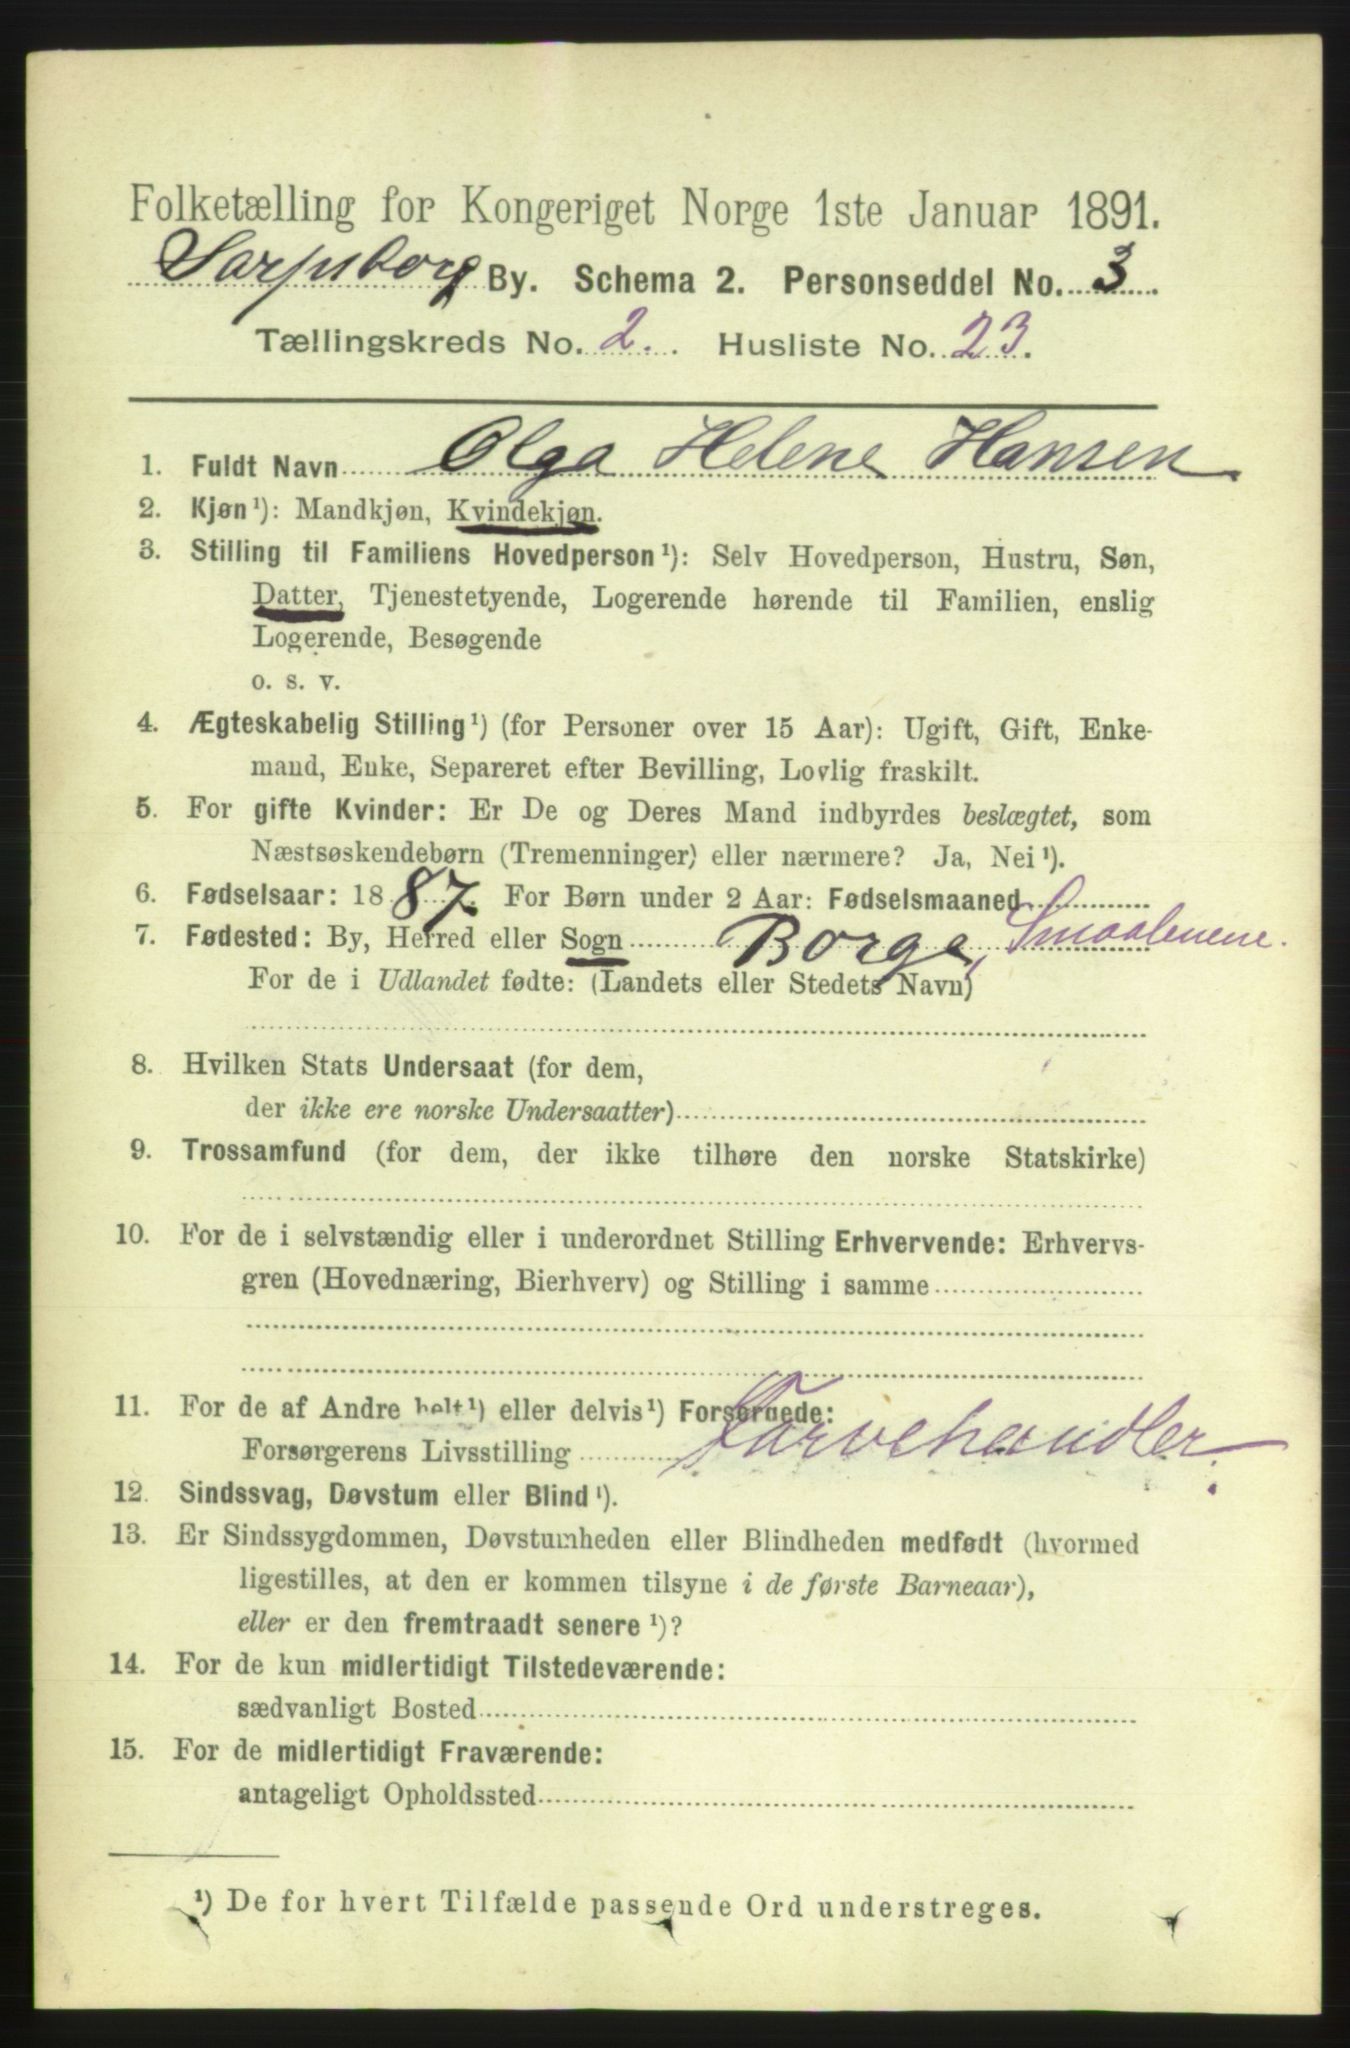 Folketælling for Kongeriget Norge 1ste Januar 1891.
Sarpsborg By. Schema 2. Personseddel No. 3.
Tællingskreds No. 2. Husliste No. 23.
1. Fuldt Navn Olga Helene Hansen
2. Kjøn¹): Mandkjøn, Kvindekjøn.
3. Stilling til Familiens Hovedperson¹): Selv Hovedperson, Hustru, Søn,
Datter, Tjenestetyende, Logerende hørende til Familien, enslig
Logerende, Besøgende
o. s. v.
4. Ægteskabelig Stilling¹) (for Personer over 15 Aar): Ugift, Gift, Enke-
mand, Enke, Separeret efter Bevilling, Lovlig fraskilt.
5. For gifte Kvinder: Er De og Deres Mand indbyrdes beslægtet, som
Næstsøskendebørn (Tremenninger) eller nærmere? Ja, Nei¹).
6. Fødselsaar: 1887. For Børn under 2 Aar: Fødselsmaaned
7. Fødested: By, Herred eller Sogn Borge, Smaalenene.
For de i Udlandet fødte: (Landets eller Stedets Navn)
8. Hvilken Stats Undersaat (for dem,
der ikke ere norske Undersaatter)
9. Trossamfund (for dem, der ikke tilhøre den norske Statskirke)
10. For de i selvstændig eller i underordnet Stilling Erhvervende: Erhvervs-
gren (Hovednæring, Bierhverv) og Stilling i samme
11. For de af Andre helt¹) eller delvis¹) Forsørgede:
Forsørgerens Livsstilling Farvehandler.
12. Sindssvag, Døvstum eller Blind¹).
13. Er Sindssygdommen, Døvstumheden eller Blindheden medfødt (hvormed
ligestilles, at den er kommen tilsyne i de første Barneaar),
eller er den fremtraadt senere¹)?
14. For de kun midlertidigt Tilstedeværende:
sædvanligt Bosted
15. For de midlertidigt Fraværende:
antageligt Opholdssted
¹) De for hvert Tilfælde passende Ord understreges.